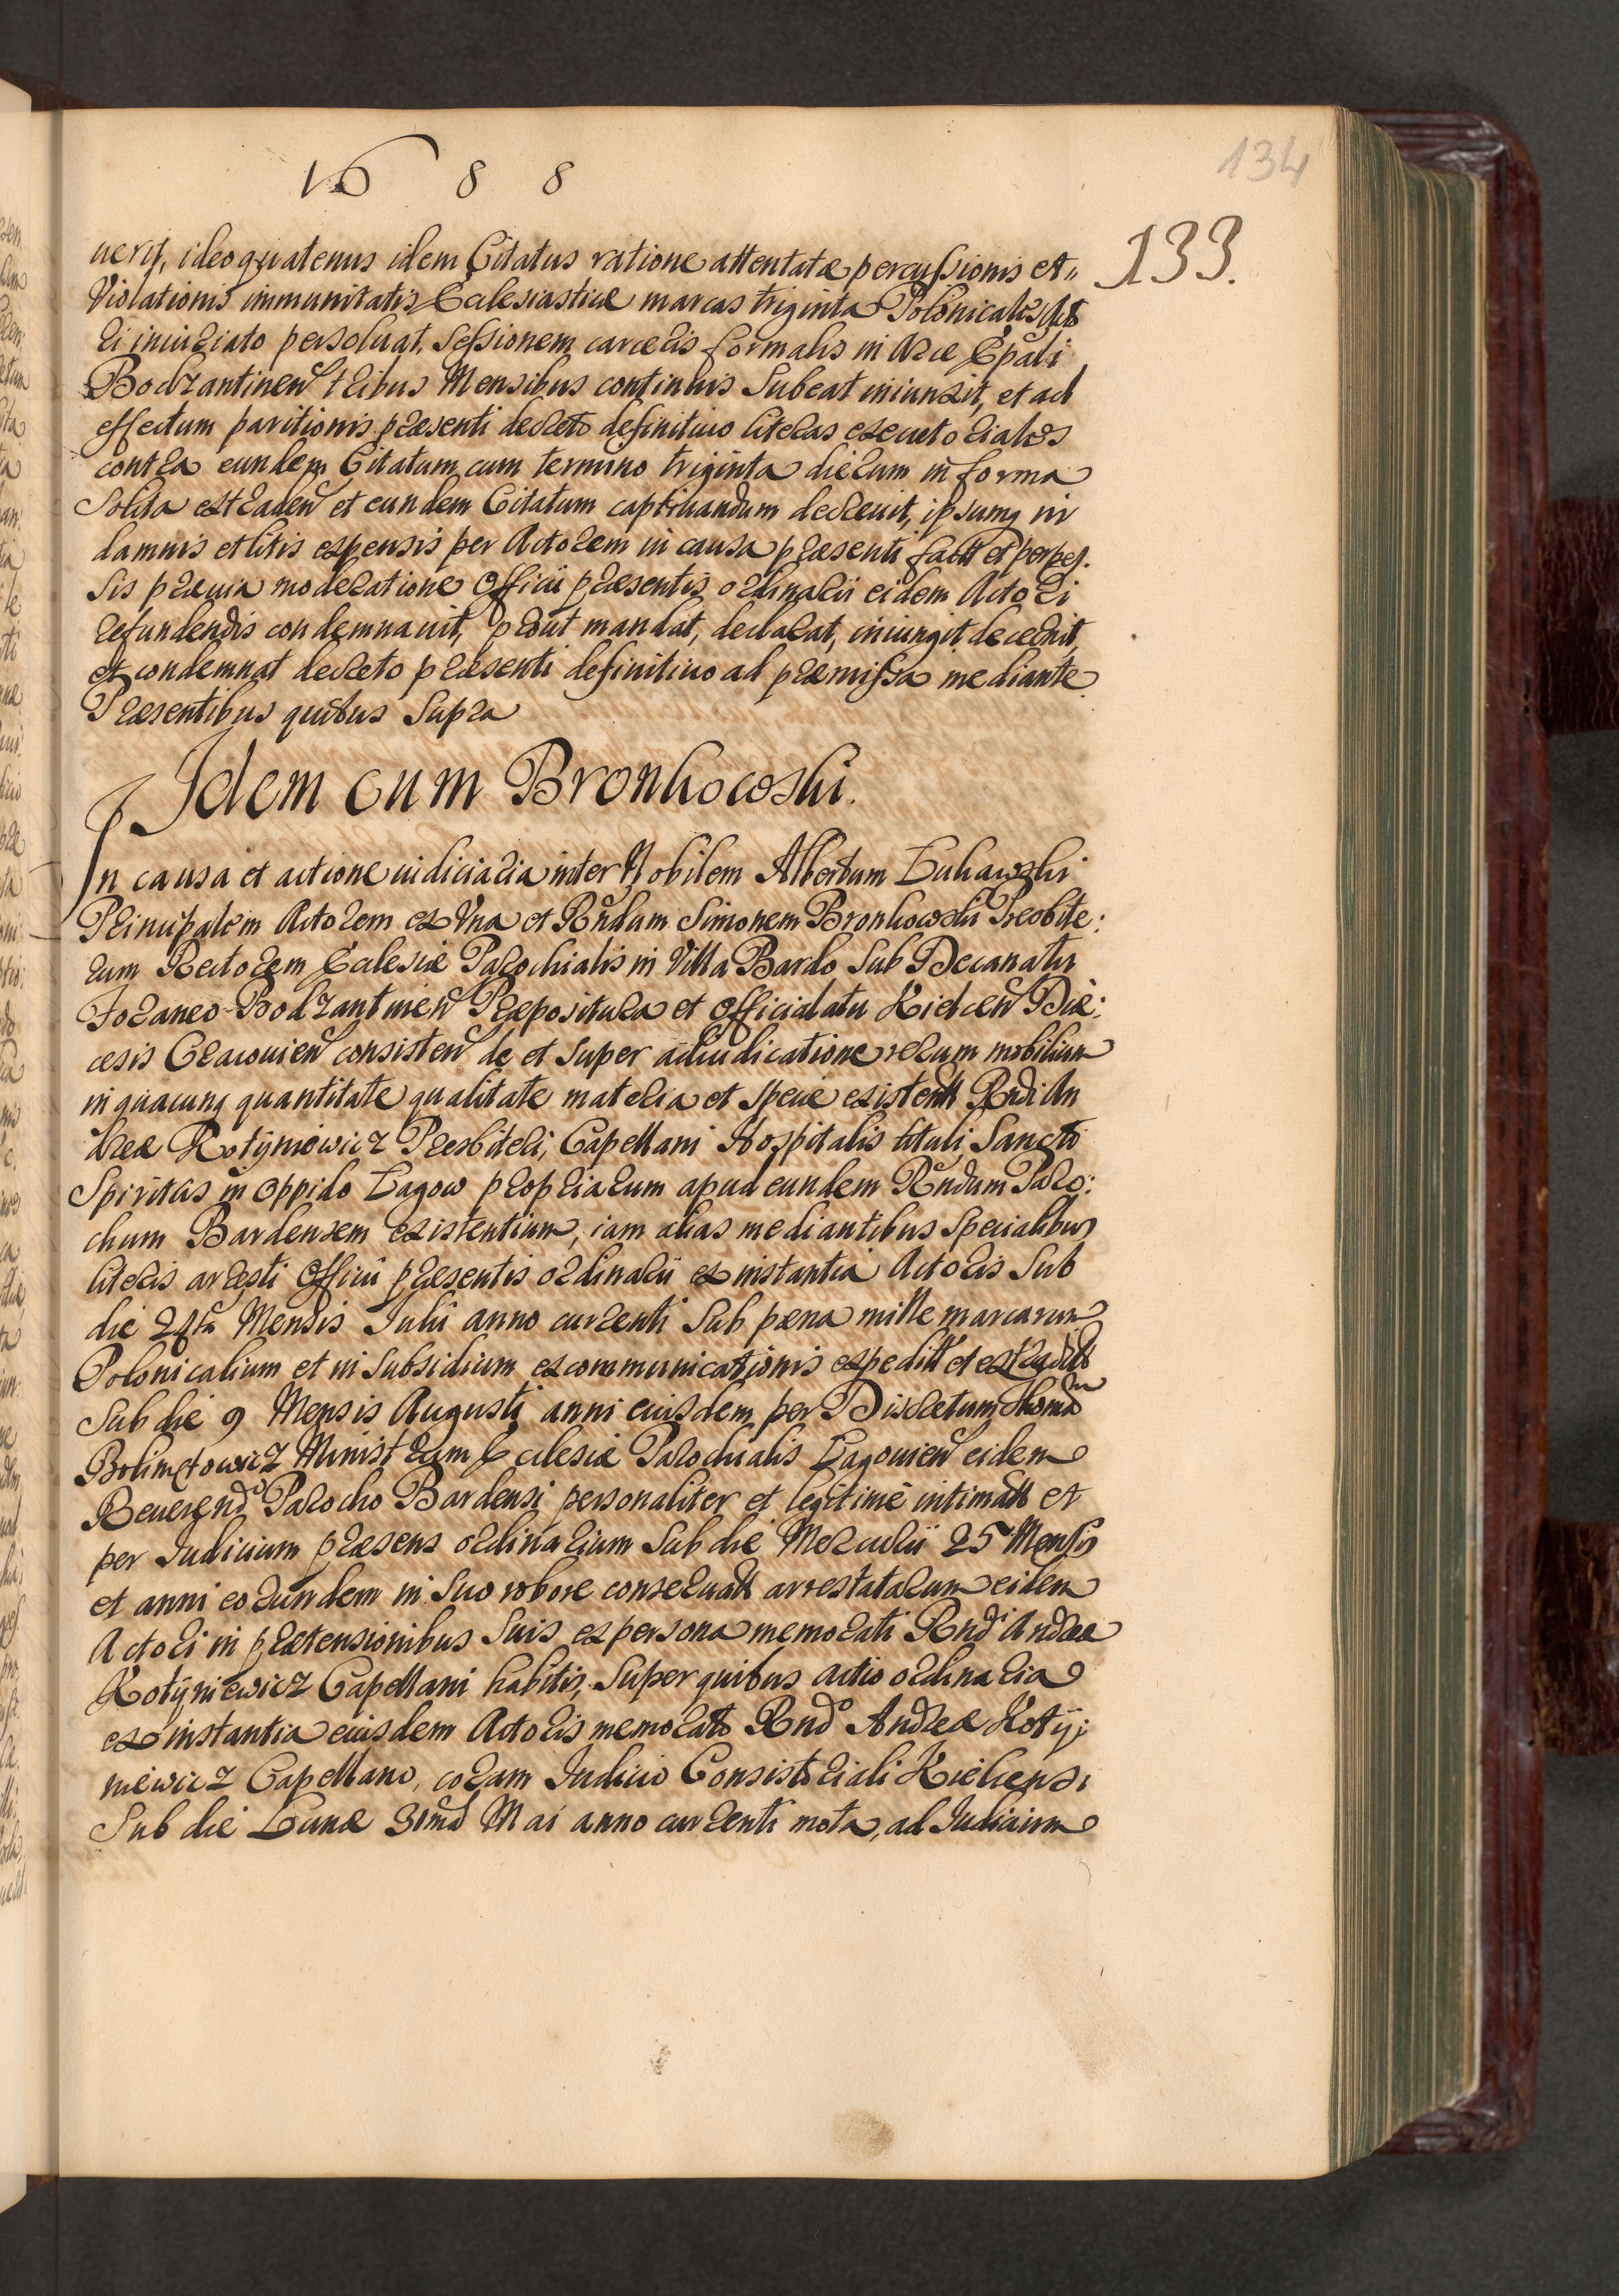 1688
134
133.
uerit, ideo quatenus idem Citatus ratione attentatæ percussionis et
Violationis immunitatis Ecclesiasticæ marcas triginta Polonicales Acto
ri iniuriato persoluat, Sessionem carceris formalis in Arce Epali
Bodzantinen tribus Mensibus continuis Subeat iniunxit, et ad
effectum paritionis præsenti decreto definitiuo literas executoriales
contra eundem Citatum cum termino triginta dierum in forma
Solita extraden et eundem Citatum captiuandum decreuit, ipsumq in
damnis et litis expensis per Actorem in causa præsenti fact et perpes.
sis præuia moderatione Officii præsentis ordinarii eidem Actori
refundendis condemnauit, prout mandat, declarat, iniungit, decernit,
et condemnat decreto præsenti definitiuo ad præmissa mediante
Præsentibus quibus Supra
Idem cum Bronkowski.
In causa et actione iudiciaria inter Nobilem Albertum Łukawski
Principalem Actorem ex Vna et Rndum Simonem Bronkowski Presbite:
rum Rectorem Ecclesiæ Parochialis in Villa Bardo Sub Decanatu
Foraneo Bodzantinen Præpositura et Officialatu Kielcen Diæ:
cesis Cracouien consisten de et Super adiudicatione rerum mobilium
in quacunq quantitate qualitate materia et specie existent Rndi An
dreæ Kotyniewicz Presbiteri, Capellani Hospitalis tituli Sancti
Spiritus in Oppido Łagow propriarum apud eundem Rndum Paro:
chum Bardensem existentium, iam alias mediantibus Specialibus
literis arresti Officii præsentis ordinarii ex instantia Actoris Sub
die 24ta Mensis Iulii anno currenti Sub pæna mille marcarum
Polonicalium et in Subsidium excommunicationis expedit et extradit
Sub die 9 Mensis Augusti anni eiusdem per Discretum Thomam
Ministrum Ecclesiæ Parochialis Łagouien eidem
Reuerendo Parocho Bardensi personaliter et legitime intimat et
per Iudicium præsens ordinarium Sub die Mercurii 25 Mensis
et anni eorundem in Suo robore conseruat arrestatarum eidem
Actori in prætensionibus Suis ex persona memorati Rndi Andreæ
Kotyniewicz Capellani habitis, Super quibus actio ordinaria
ex instantia eiusdem Actoris memorato Rndo Andreæ Koty:
niewicz Capellano, coram Iudicio Consistoriali Kielcensi
Sub die Lunæ 31ma Mai anno currenti mota, ad Iudicium